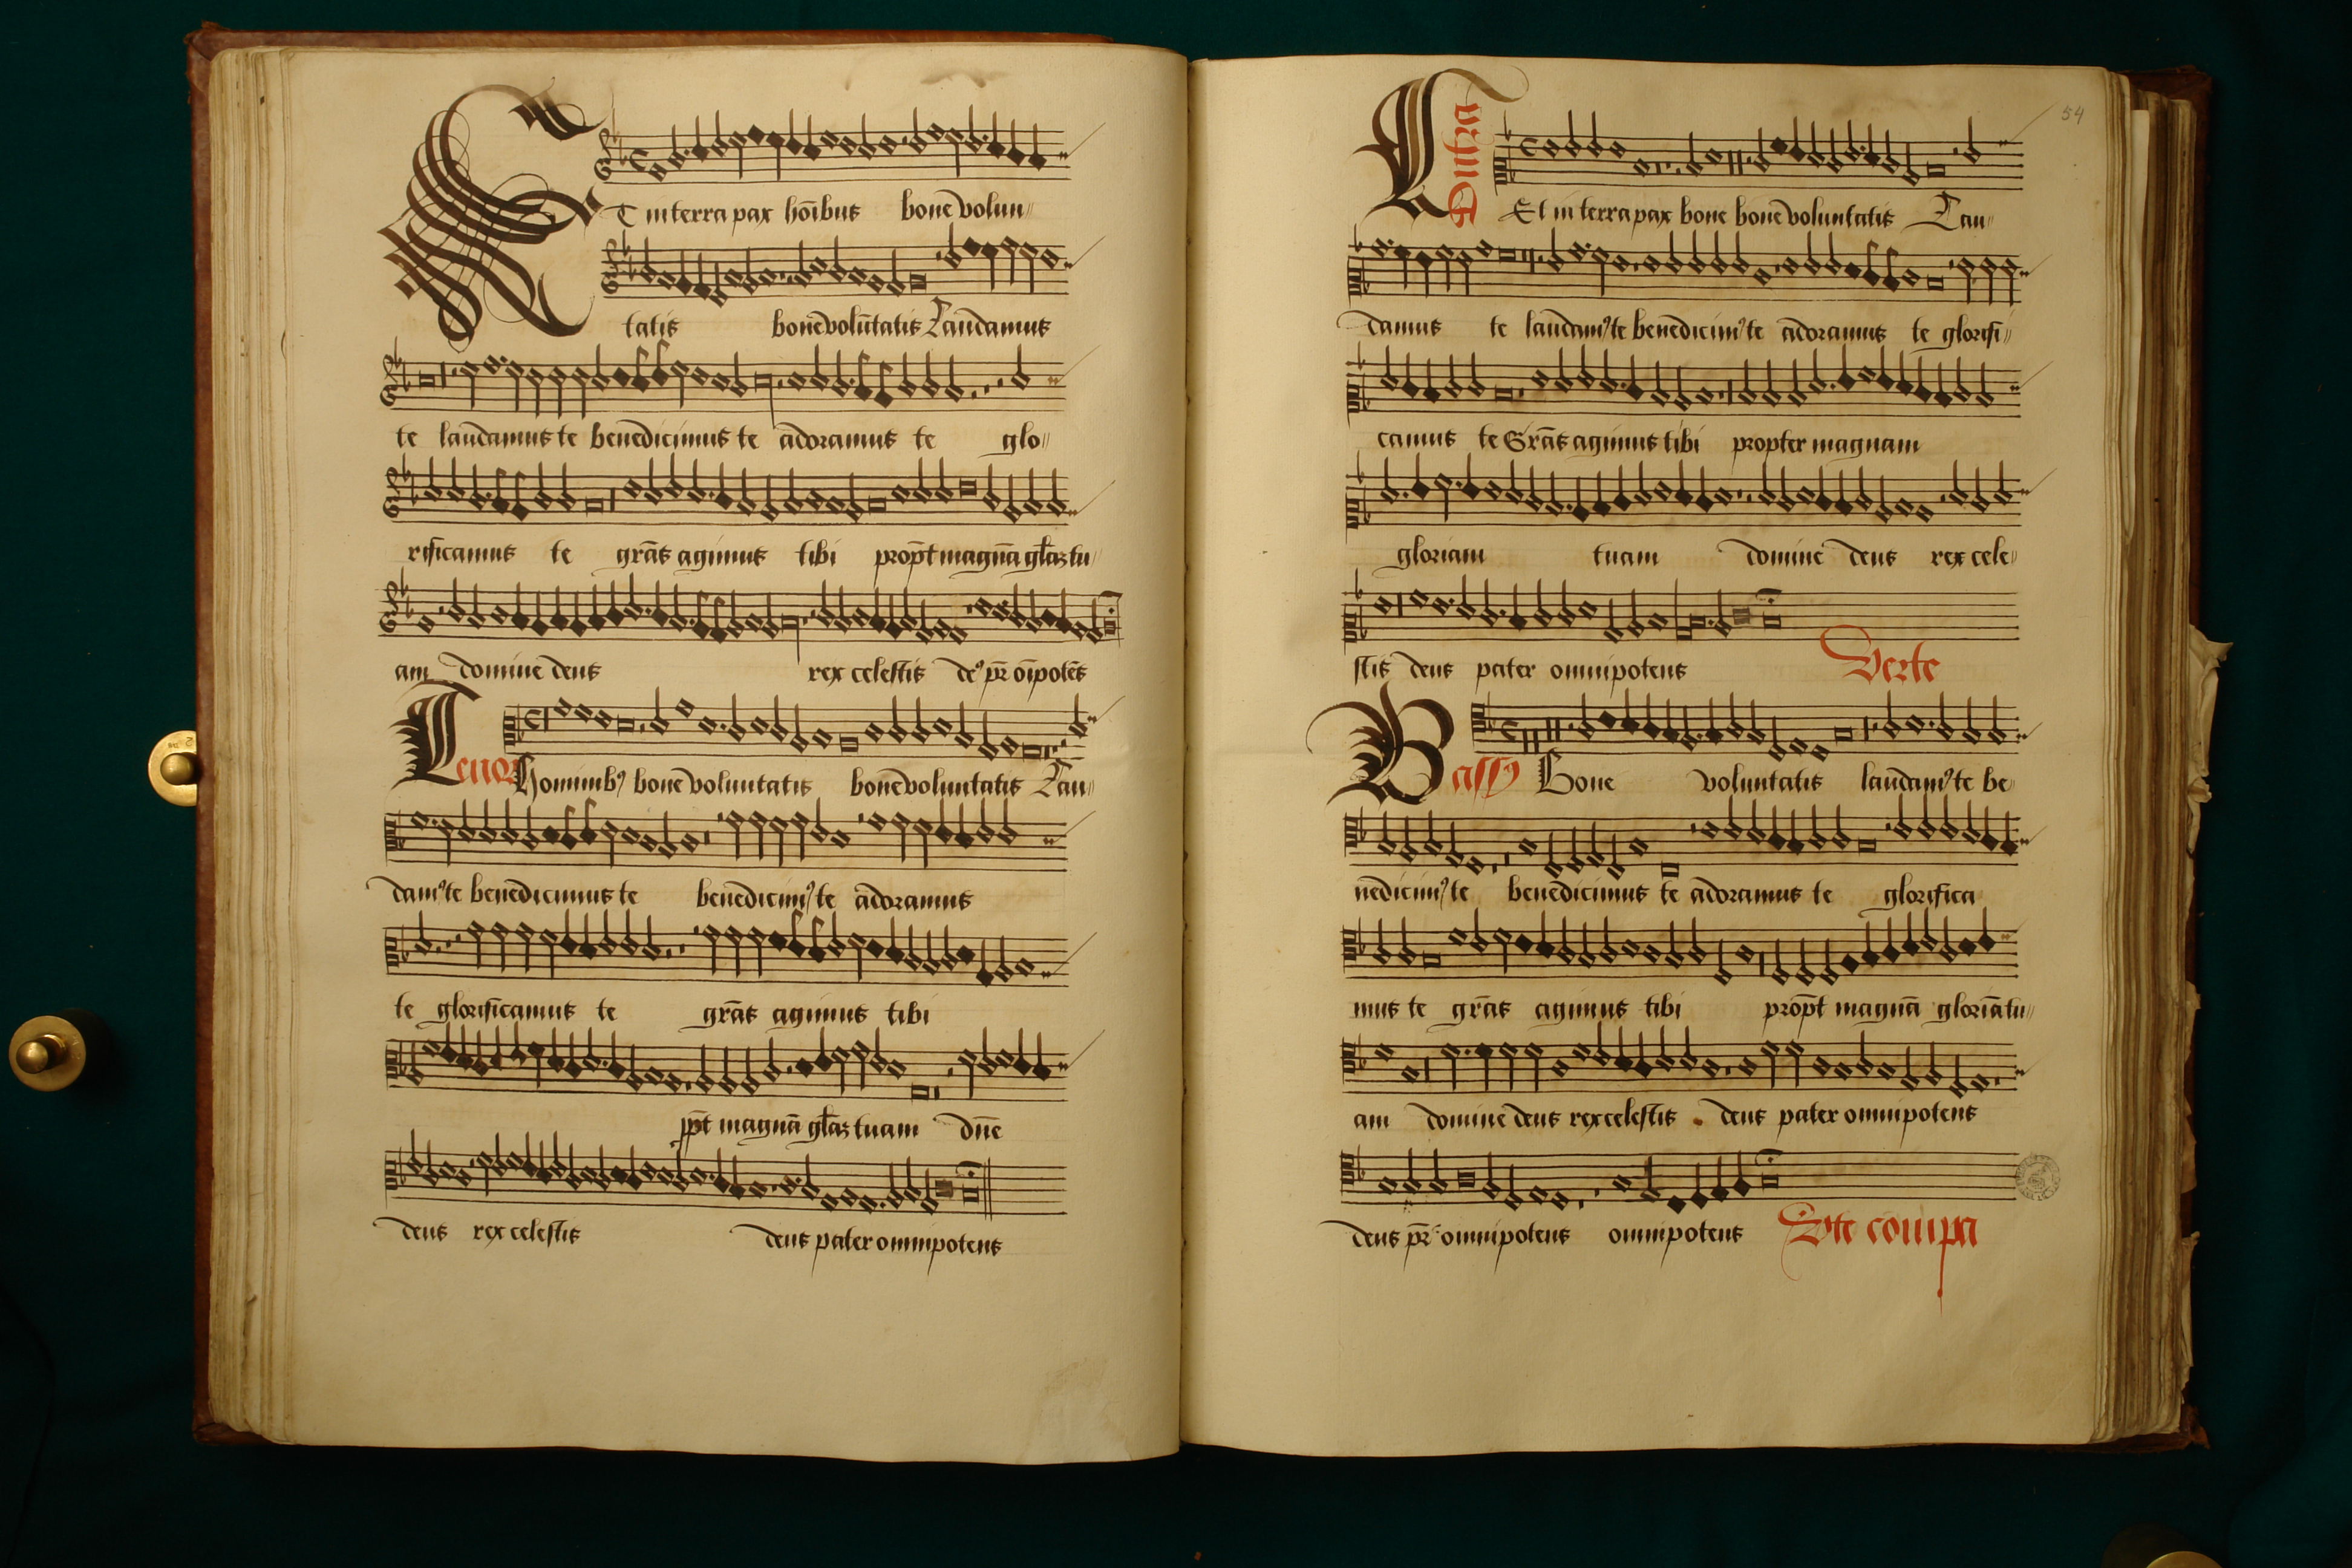 Et in terra pax hoībus bone volun〃
tatis bone volūtatis Laudamus
te laudamus te benedicimus te adoramus te glo〃
rificamus te grās agimus tibi prop̄t magnā gl̄az tu〃
am domine deus rex celestis de⁹ pr̄ oīpotēs
Tenor
Hominib⁹ bone voluntatis bone voluntatis Lau〃
dam⁹ te benedicimus te benedicim⁹ te adoramus
te glorificamus te grās agimus tibi
pp̄t magnā gl̄az tuam dn̄e
deus rex celestis deus pater omnipotens
54
Contra
Et in terra pax bone bone voluntatis Lau〃
damus te laudam⁹ te benedicim⁹ te adoramus te glorifi〃
camus te Grās agimus tibi propter magnam
gloriam tuam domine deus rex cele〃
stis deus pater omnipotens
Verte
Bass⁹ Bone voluntatis laudam⁹ te be〃
nedicim⁹ te benedicimus te adoramus te glorifica
mus te grās agimus tibi prop̄t magnā gloriā tu〃
am domine deus rex celestis deus pater omnipotens
deus pr̄ omnipotens omnipotens